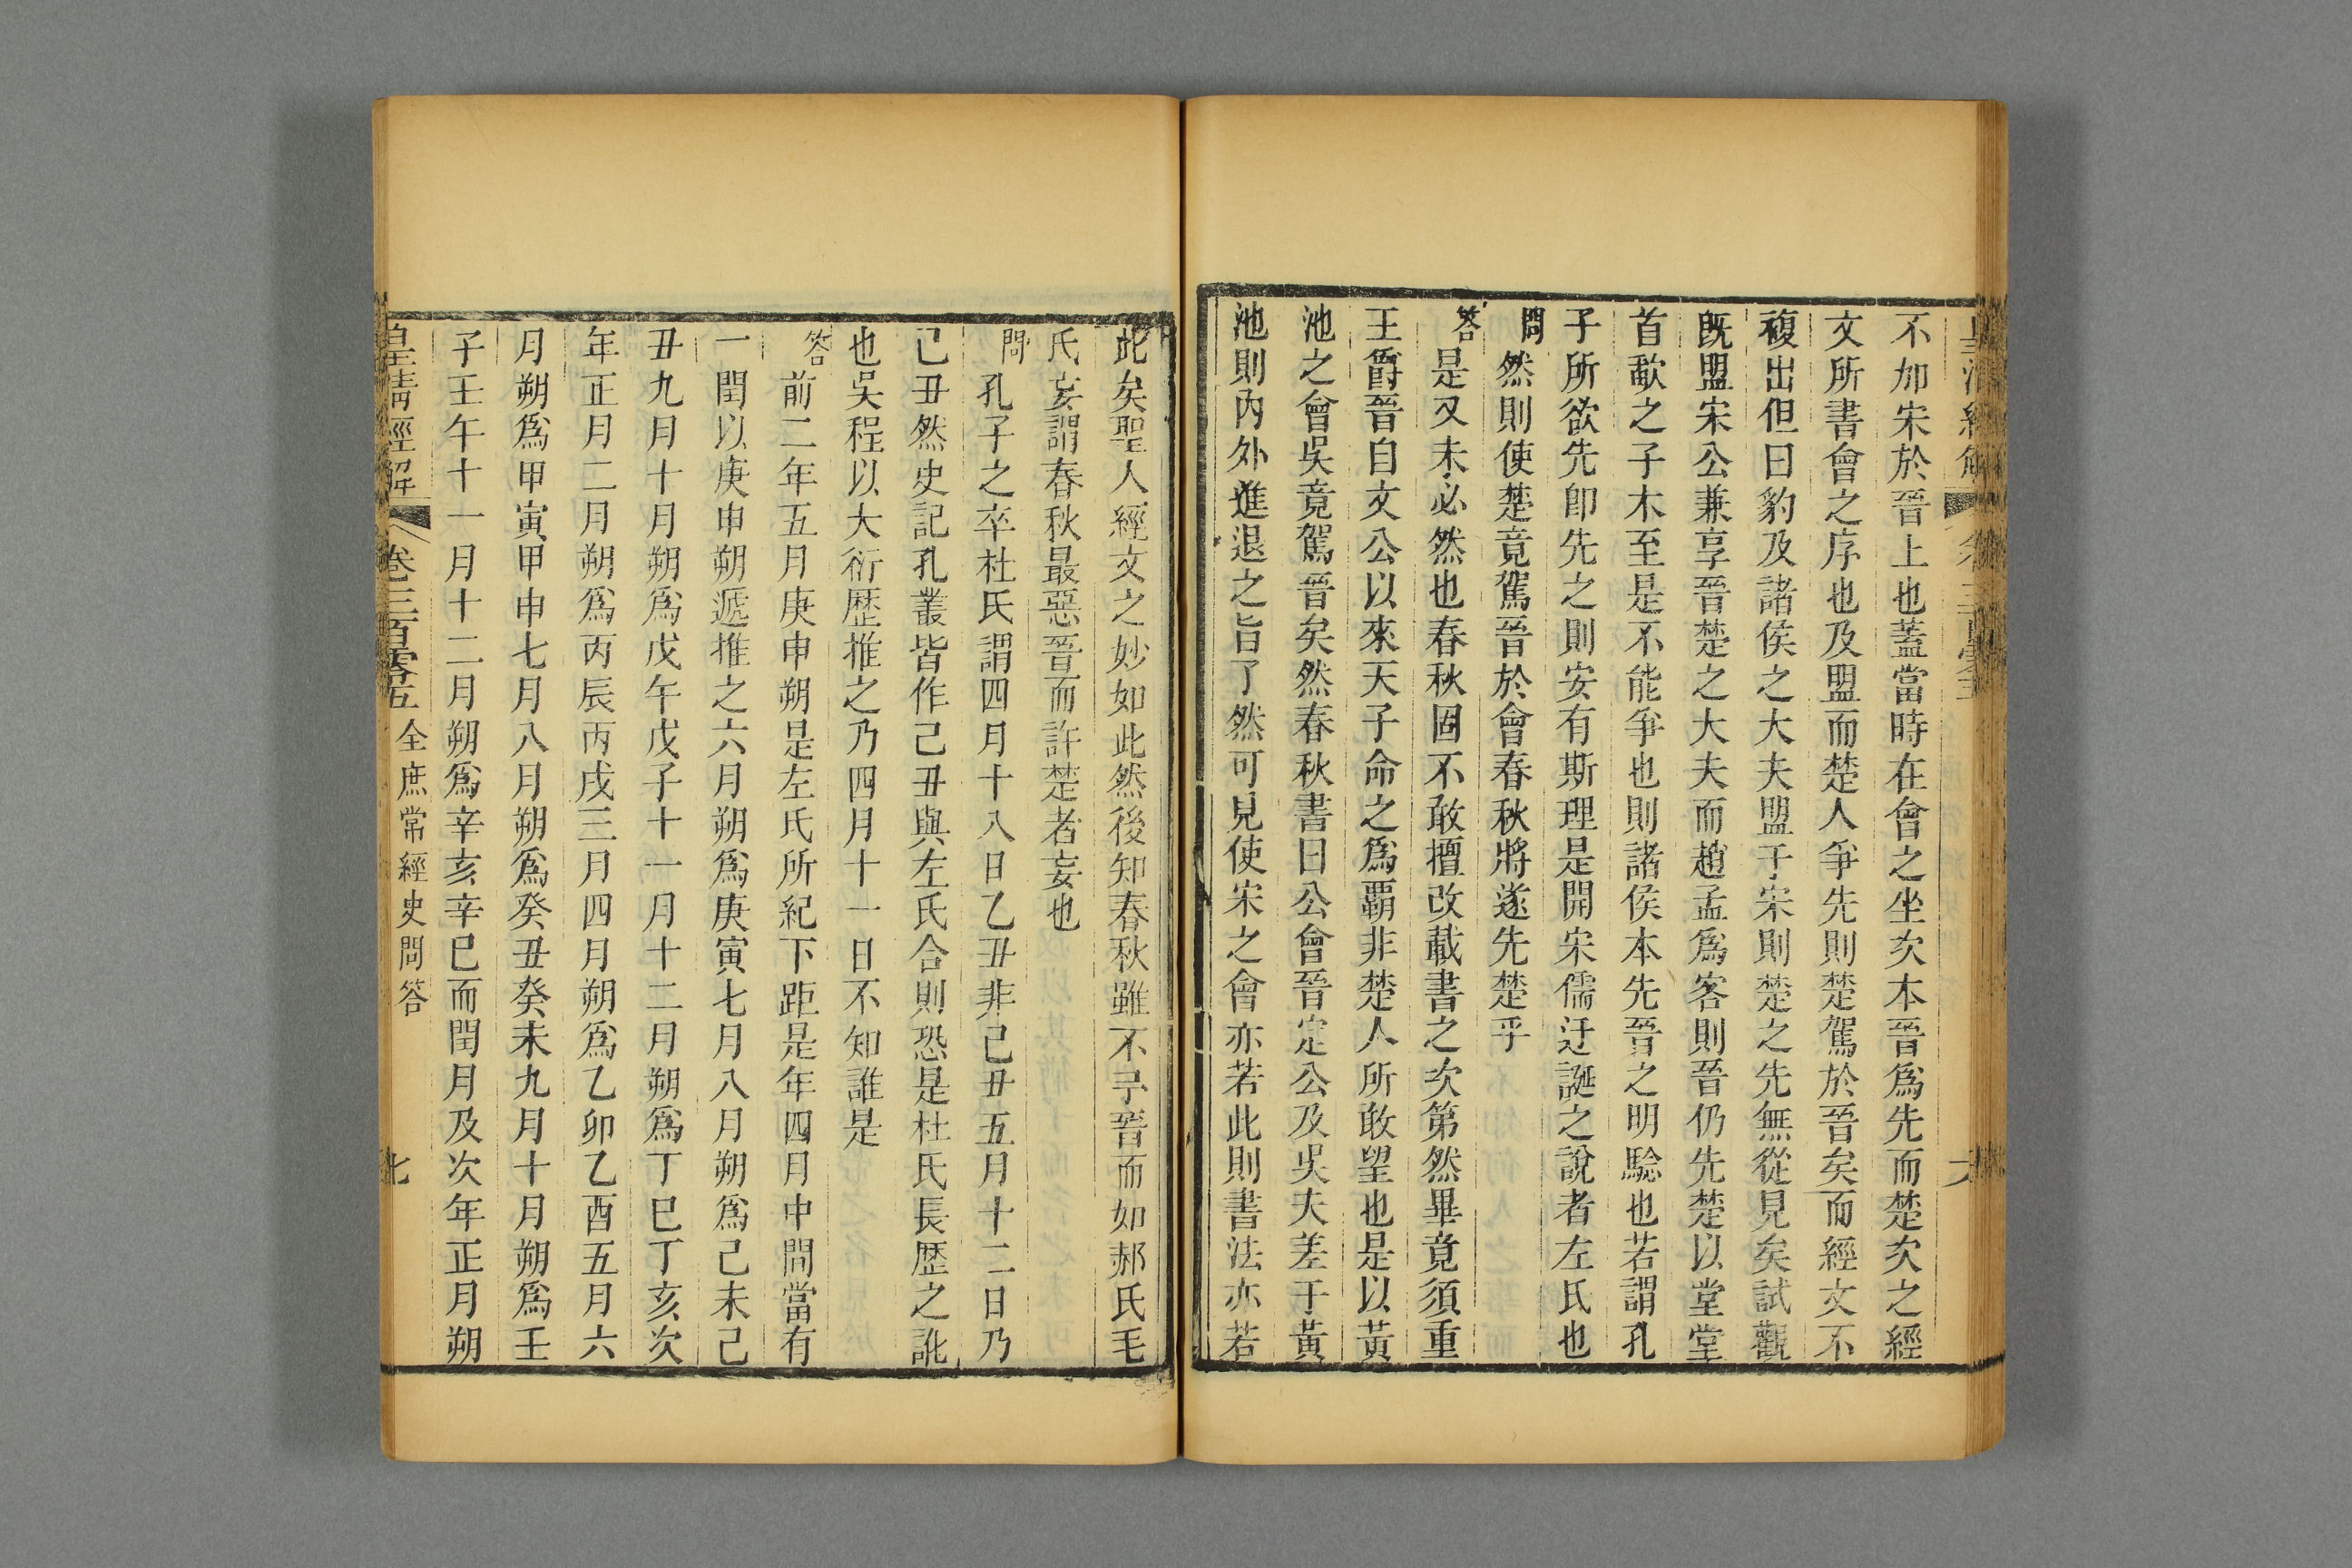 不加宋於晉上也蓋當時在會之坐次本晉爲先而楚次之經
文所書會之序也及盟而楚人爭先則楚駕於晉矣而經文不
複出但曰豹及諸侯之大夫盟于宋則楚之先無從見矣試觀
旣盟宋公兼享晉楚之大夫而趙孟爲客則晉仍先楚以堂堂
首歃之子木至是不能爭也則諸侯本先晉之明驗也若謂孔
子所欲先卽先之則安有斯理是開宋儒迂誕之說者左氏也
問然則使楚竟駕晉於會春秋將遂先楚乎
答是又未必然也春秋固不敢擅改載書之次第然畢竟須重
王爵晉自文公以來天子命之爲覇非楚人所敢望也是以黃
池之會吳竟駕晉矣然春秋書曰公會晉定公及吳夫差于黃
池則內外進退之旨了然可見使宋之會亦若此則書法亦若
此矣聖人經文之妙如此然後知春秋雖不予晉而如郝氏毛
氏妄謂春秋最惡晉而許楚者妄也
問孔子之卒杜氏謂四月十八日乙丑非己丑五月十二日乃
己丑然史記孔叢皆作己丑與左氏合則恐是杜氏長歷之訛
也吳程以大衍歷推之乃四月十一日不知誰是
答前二年五月庚申朔是左氏所紀下距是年四月中間當有
一閏以庚申朔遞推之六月朔爲庚寅七月八月朔爲己未己
丑九月十月朔爲戊午戊子十一月十二月朔爲丁巳丁亥次
年正月二月朔爲丙辰丙戌三月四月朔爲乙卯乙酉五月六
月朔爲甲寅甲申七月八月朔爲癸丑癸未九月十月朔爲壬
子壬午十一月十二月朔爲辛亥辛巳而閏月及次年正月朔
皇淸經解 卷三百零五 全庶常經史問答